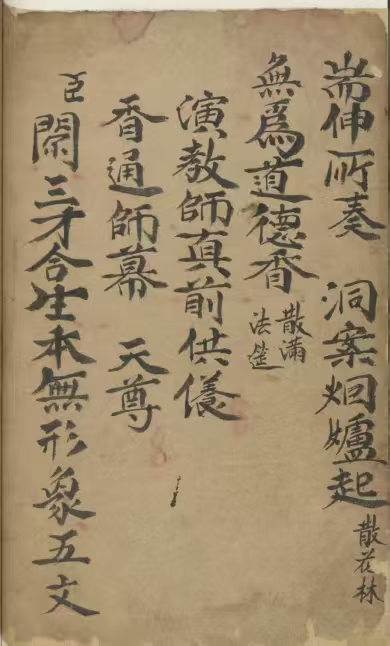 耑伸所奏 洞案烟爐起 散花林
無爲道德香 散滿法筵
演教師真前供儀
香通師幕 天尊
臣聞三才合生本無形象五文